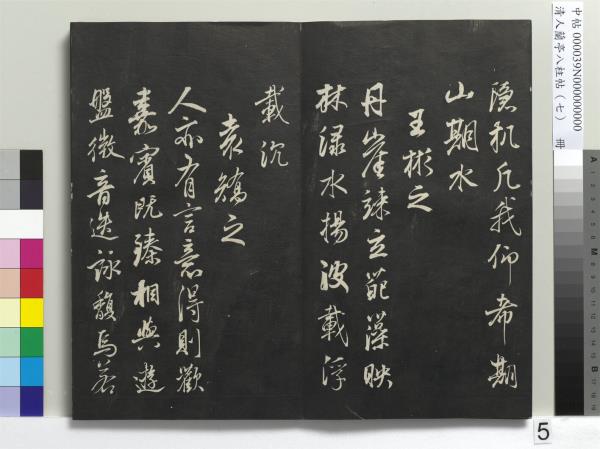 中帖 000039N000000000
清人蘭亭八柱帖（七） 冊
隱机凡我仰希期
山期水
王彬之
丹崖竦立葩藻映
林淥水揚波載浮
載沉
袁嶠之
人亦有言意得則歡
嘉賓既臻相與遊
盤微音迭詠馥焉若
5